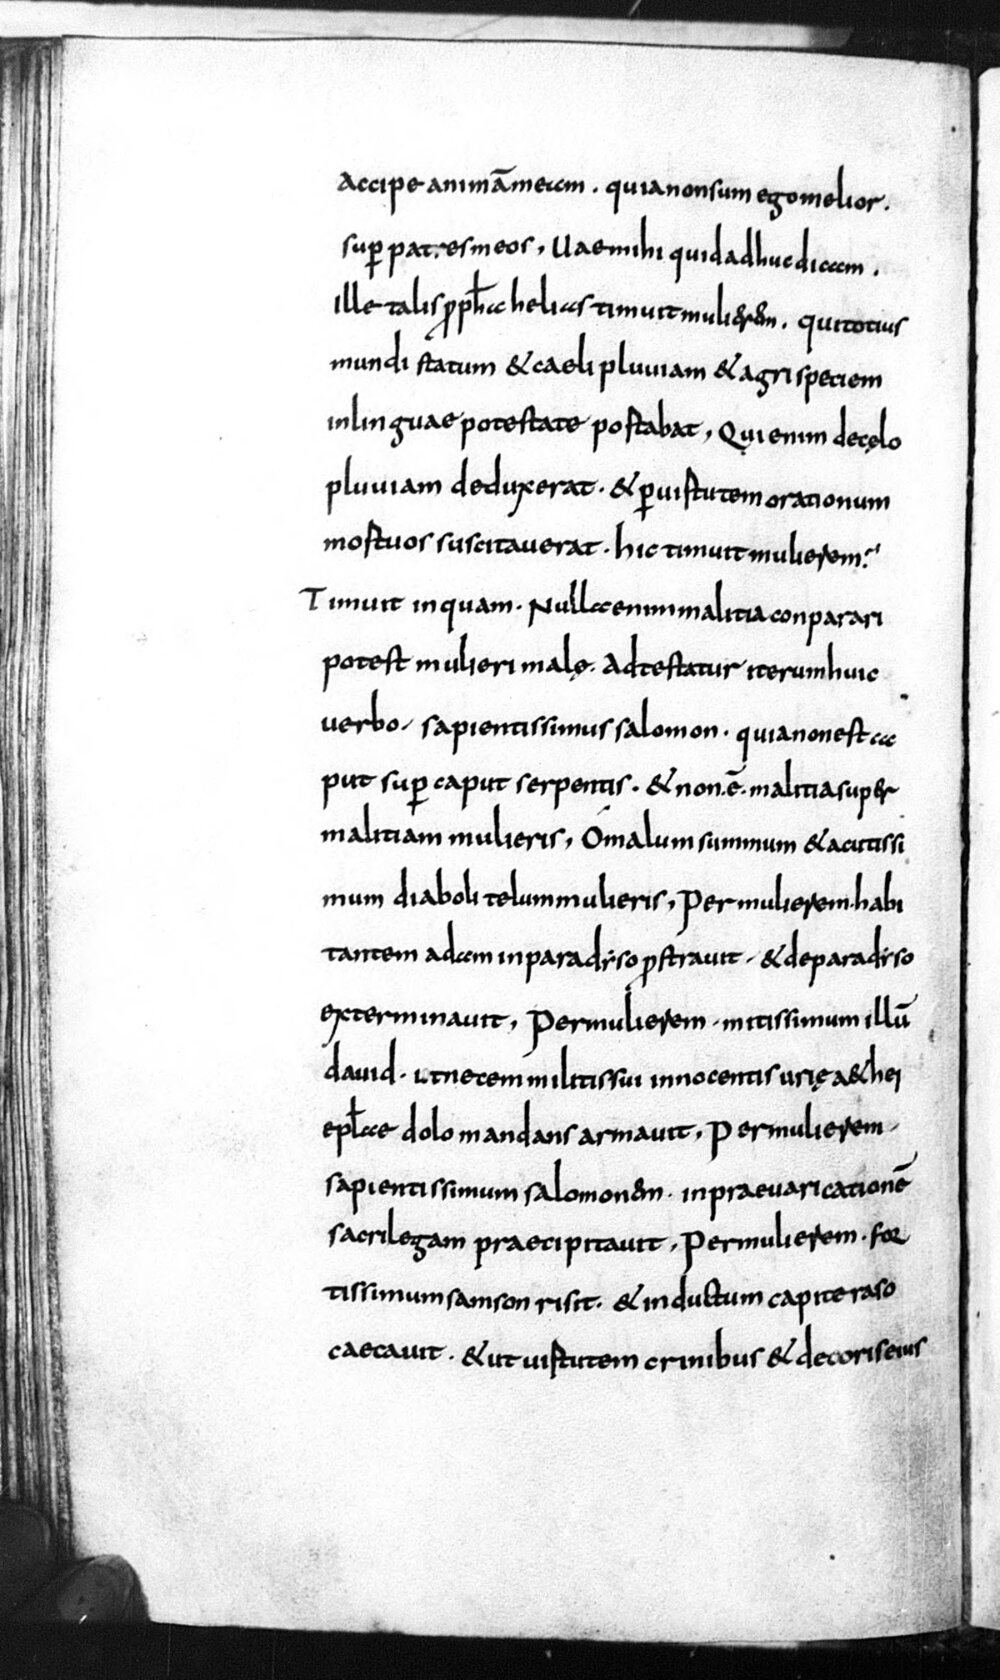 accipe animā meam. quia non sum ego melior.
sup̄ patres meos, Uae mihi quid adhuc dicam.
ille talis ꝓph̄a helias timuit mulierem. qui totius
mundi statum & caeli pluuiam & agri speciem
in linguae potestate portabat, Qui enim de cęlo
pluuiam deduxerat. & p̄ uirtutem orationum
mortuos suscitauerat. hic timuit mulierem?
Timuit inquam. Nulla enim malitia conparari
potest mulieri malę. Adtestatur iterum huic
uerbo. sapientissimus salomon. quia non est ca
put sup̄ caput serpentis. & non .ē. malitia super
malitiam mulieris, O malum summum & acutissi
mum diaboli telum mulieris, Per mulierem. habi
tantem adam in paradiso ꝓstrauit. & de paradiso
exterminauit, Per mulierem. mitissimum illū
dauid. ut necem militis sui innocentis urię a&hei
epl̄ae dolo mandans armauit, Per mulierem.
sapientissimum salomonem. in praeuaricationē
sacrilegam praecipitauit, Per mulierem. for
tissimum samson risit. & inductum capite raso
caecauit. & ut uirtutem crinibus & decoris eius